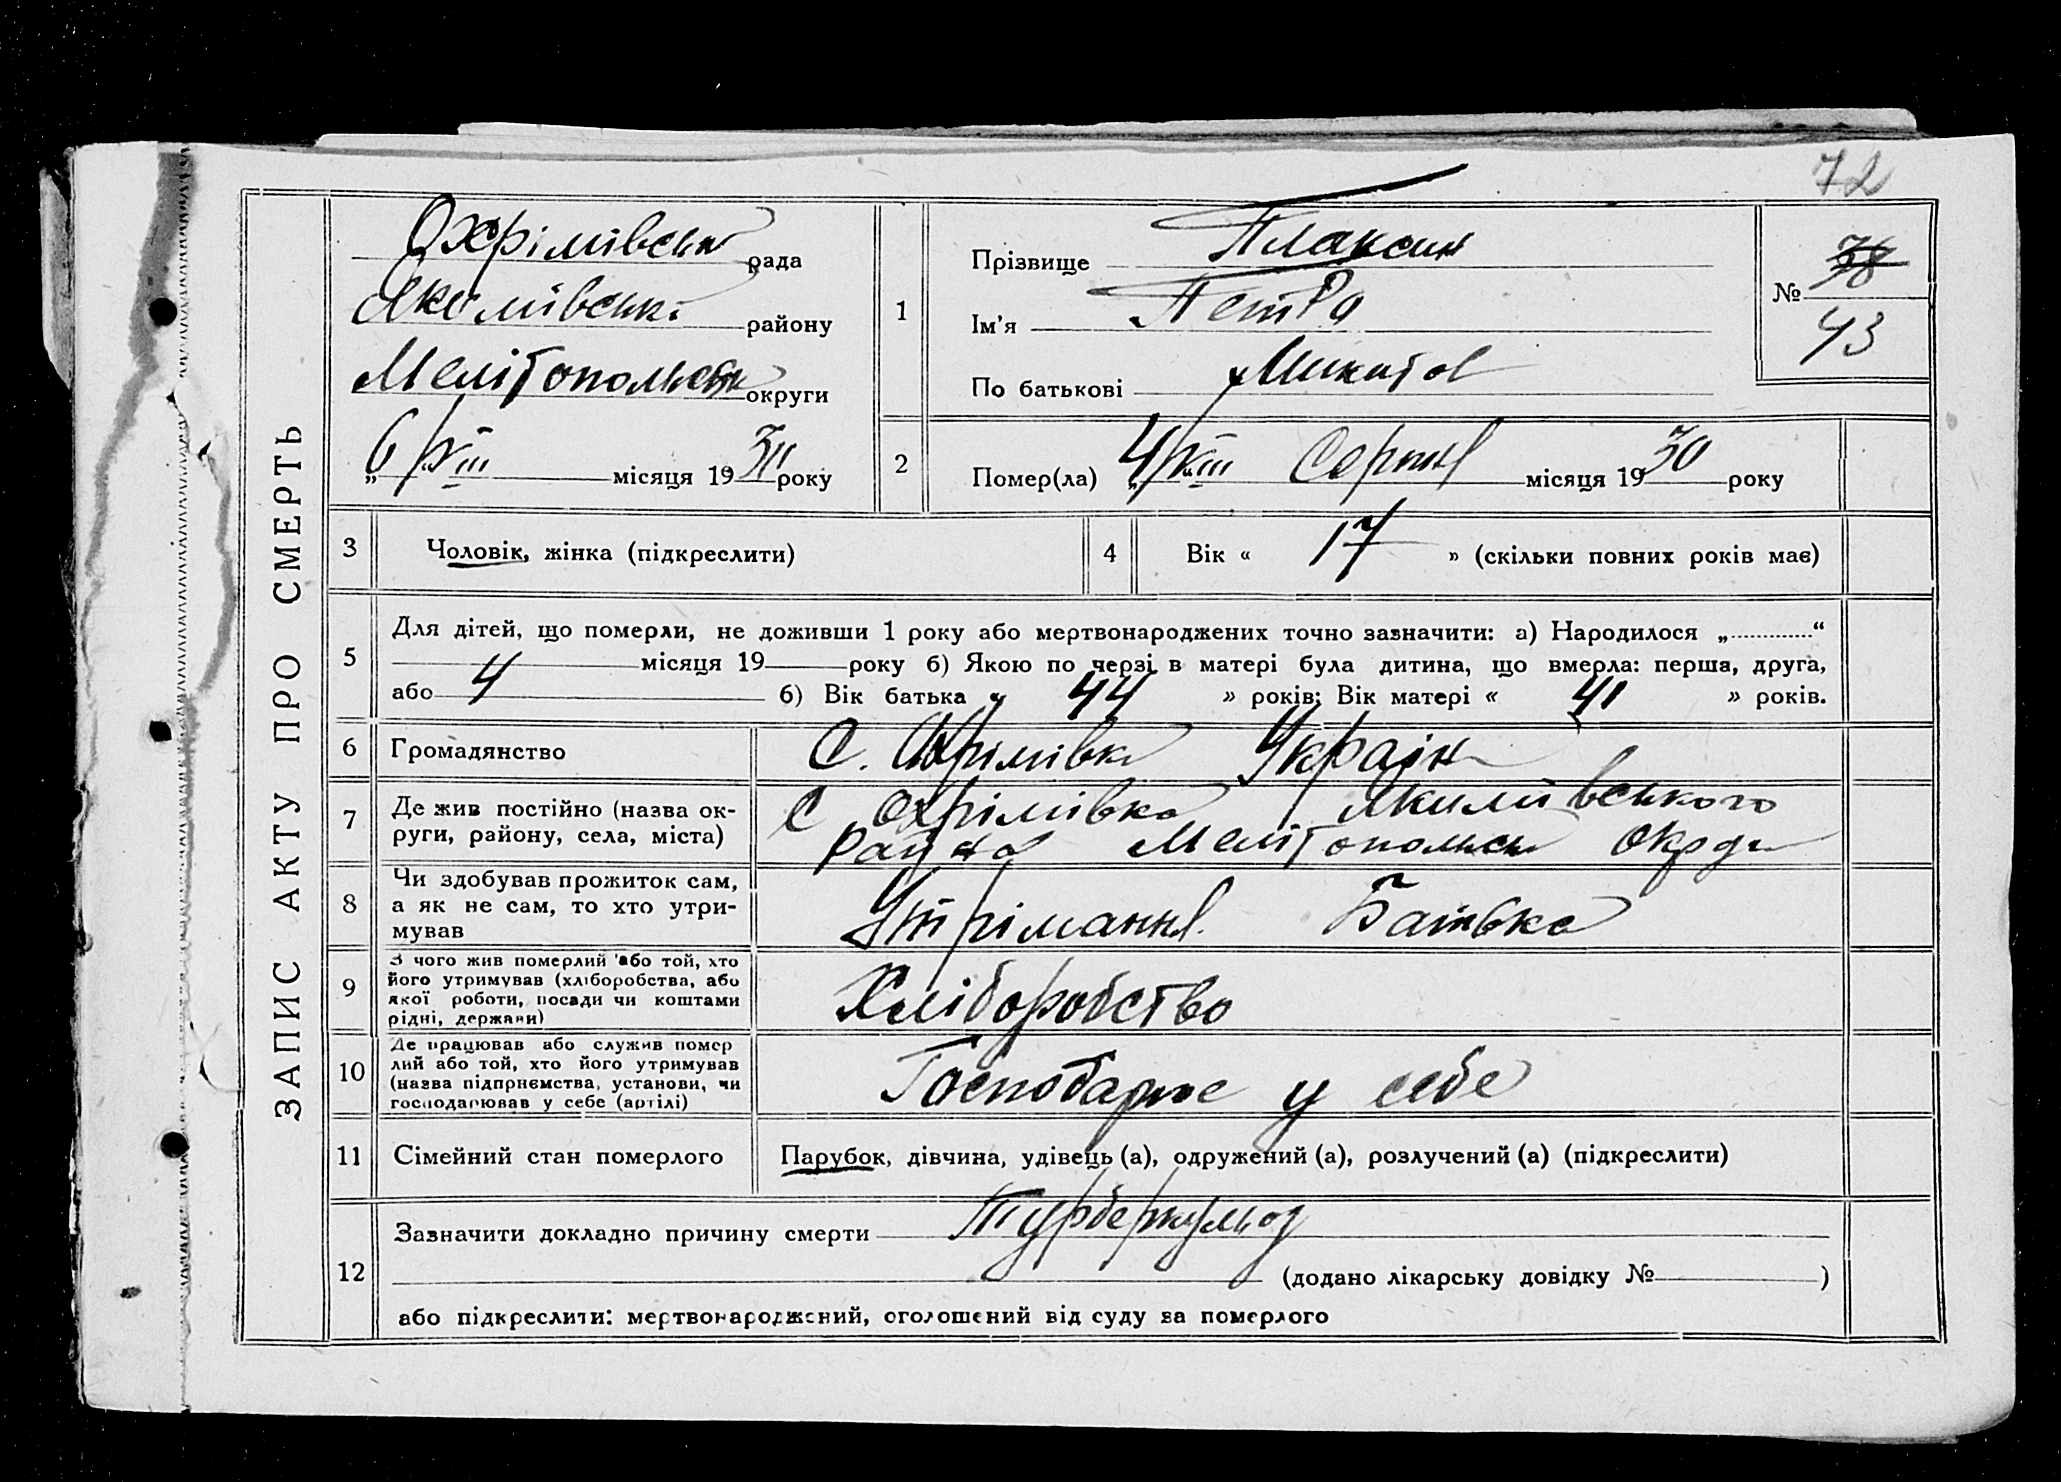 72
ЗАПИС АКТУ ПРО СМЕРТЬ
Охрімівська рада
Якимівськ. району
Мелітопольськ округи
„6/VIII місяця 1930 року
1
Прізвище Плаксин
Ім'я Петро
По батькові Микитов
№ 38
43
2
Помер(ла) „4/VIII Серпня місяця 1930 року
3
Чоловік, жінка (підкреслити)
4
Вік « 17 » (скільки повних років має)
5
Для дітей, що померли, не доживши 1 року або мертвонароджених точно зазначити: а) Народилося „.............“
місяця 19 року б) Якою по черзі в матері була дитина, що вмерла: перша, друга,
або 4 б) Вік батька „ 44 » років; Вік матері « 41 » років.
6
Громадянство
С. Охрімівка Україн
7
Де жив постійно (назва ок-
руги, району, села, міста)
С Охрімівка Якимівського
Району Мелітопольськ Округи
8
Чи здобував прожиток сам,
а як не сам, то хто утри-
мував
Утрімання Батька
9
З чого жив померлий або той, хто
його утримував (хліборобства, або
якої роботи, посади чи коштами
рідні, держави)
Хліборобство
10
Де працював або служив помер
лий або той, хто його утримував
(назва підприємства, установи, чи
господарював у себе (артілі)
Господарює у себе
11
Сімейний стан померлого
Парубок, дівчина, удівець (а), одружений (а), розлучений (а) (підкреслити)
12
Зазначити докладно причину смерти Турберкульоз
(додано лікарську довідку № )
або підкреслити: мертвонароджений, оголошений від суду за померлого